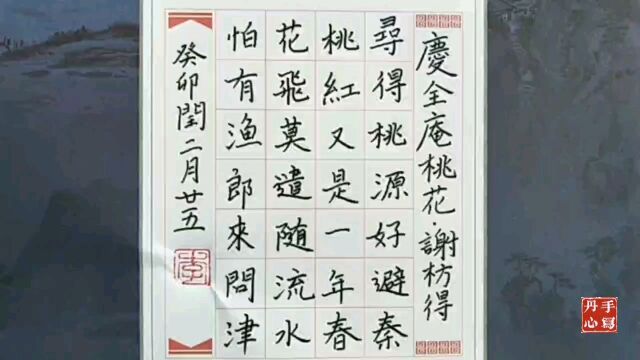 慶全庵桃花·謝枋得
尋得桃源好避秦
桃紅又是一年春
花飛莫遣隨流水
怕有漁郎來問津
癸卯閏二月廿五
李
手寫丹心